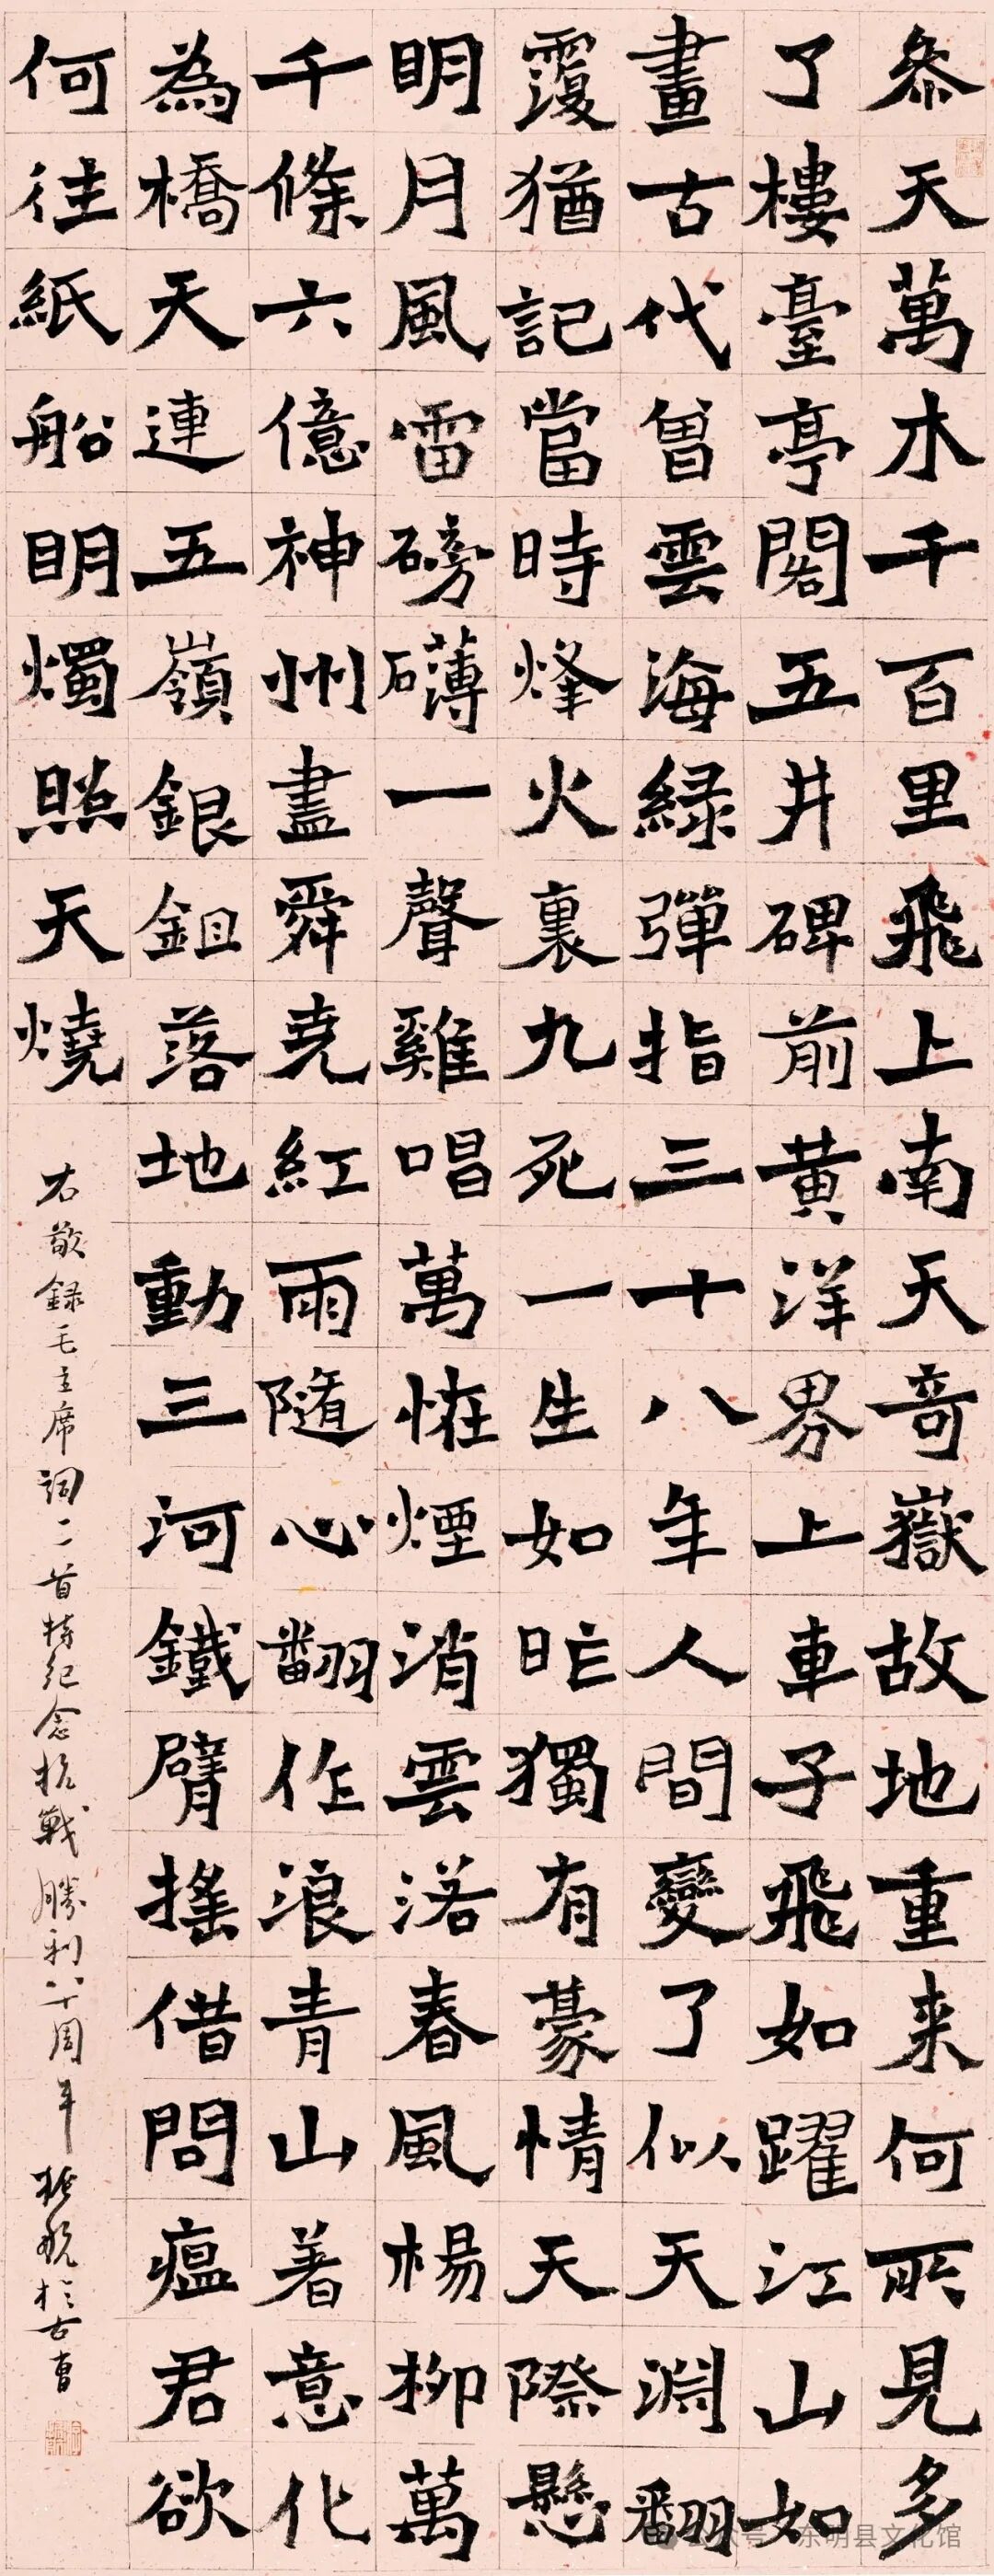 叅天萬木千百里飛上南天奇嶽故地重来何所見多
了樓臺亭閣五井碑前黄洋界上車子飛如躍江山如
畫古代曾雲海緑彈指三十八年人間變了似天淵翻
覆猶記當時烽火裏九死一生如昨獨有豪情天際懸
明月風雷磅礴一聲雞唱萬恠煙消雲落春風楊柳萬
千條六億神州盡舜堯紅雨隨心翻作浪青山着意化
為橋天連五嶺銀鉏落地動三河鐵臂摇借問瘟君欲
何往紙船明燭照天燒
右敬録毛主席詞二首特紀念抗戰勝利八十周年 於古曹
公众号 · 东明县文化馆